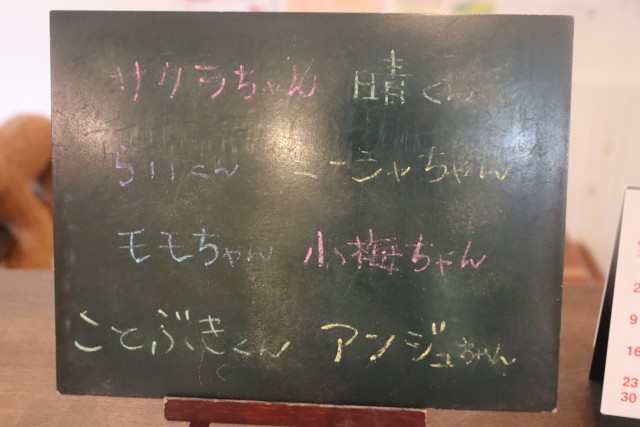 サクラちゃん 晴くん
らいくん ニーシャちゃん
モモちゃん 小梅ちゃん
ことぶきくん アンジュちゃん
2
9
16
23
30